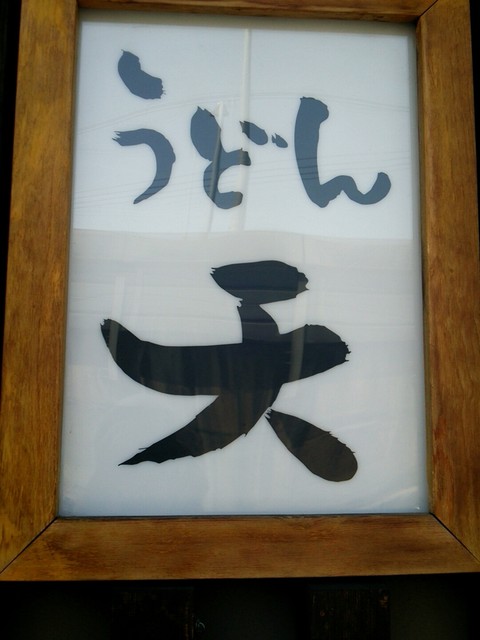 うどん
天